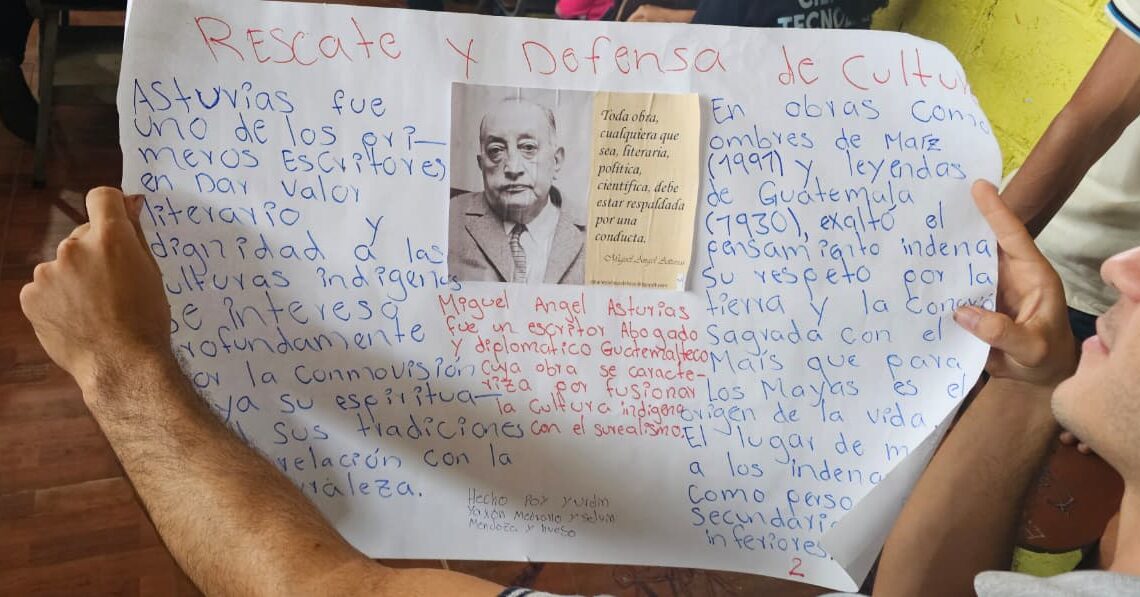 Rescate y Defensa de Cultu
Asturias fue
uno de los pri-
meros Escritores
en Dar valor
literario y
dignidad a las
ulturas indigenas
se interesa
rofundamente
or la Conmovisión
ya su espiritua-
sus tradiciones
relación con la
uraleza.
Toda obra,
cualquiera que
sea, literaria,
política,
científica, debe
estar respaldada
por una
conducta.
Miguel Angel Asturias
Miguel Angel Asturias
fue un escritor Abogado
y diplomatico Guatemalteco
cuya obra se caracte-
riza por fusionar
la Cultura indigena
con el surealismo.
Hecho Por
Mendoza y
En obras Como
ombres de Maiz
(1991) y leyendas
de Guatemala
(1930), exaltó el
pensamiento indena
su respeto por la
tierra y la
Sagrada con el
Maís que para
los Mayas es el
origen de la vida
El lugar de m
a los indena
Como perso
secundario
inferiores.
2
TECNOL